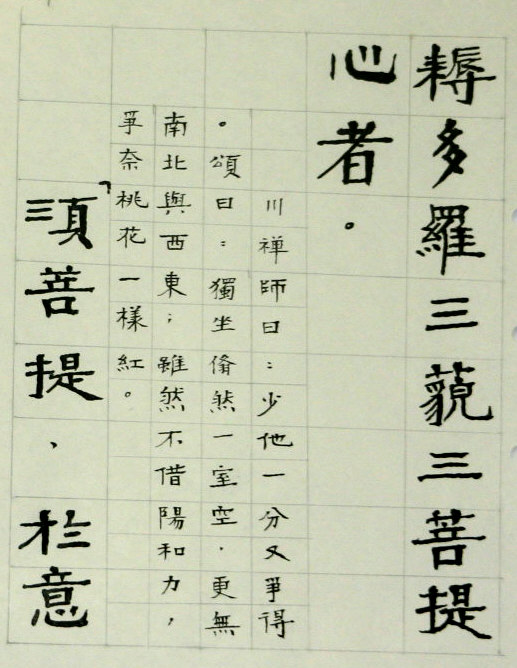 耨多羅三藐三菩提
心者。
川禅師曰：少他一分又爭得
。頌曰：獨坐翛然一室空，更無
南北與西東；雖然不借陽和力，
爭奈桃花一樣紅。
「須菩提，於意